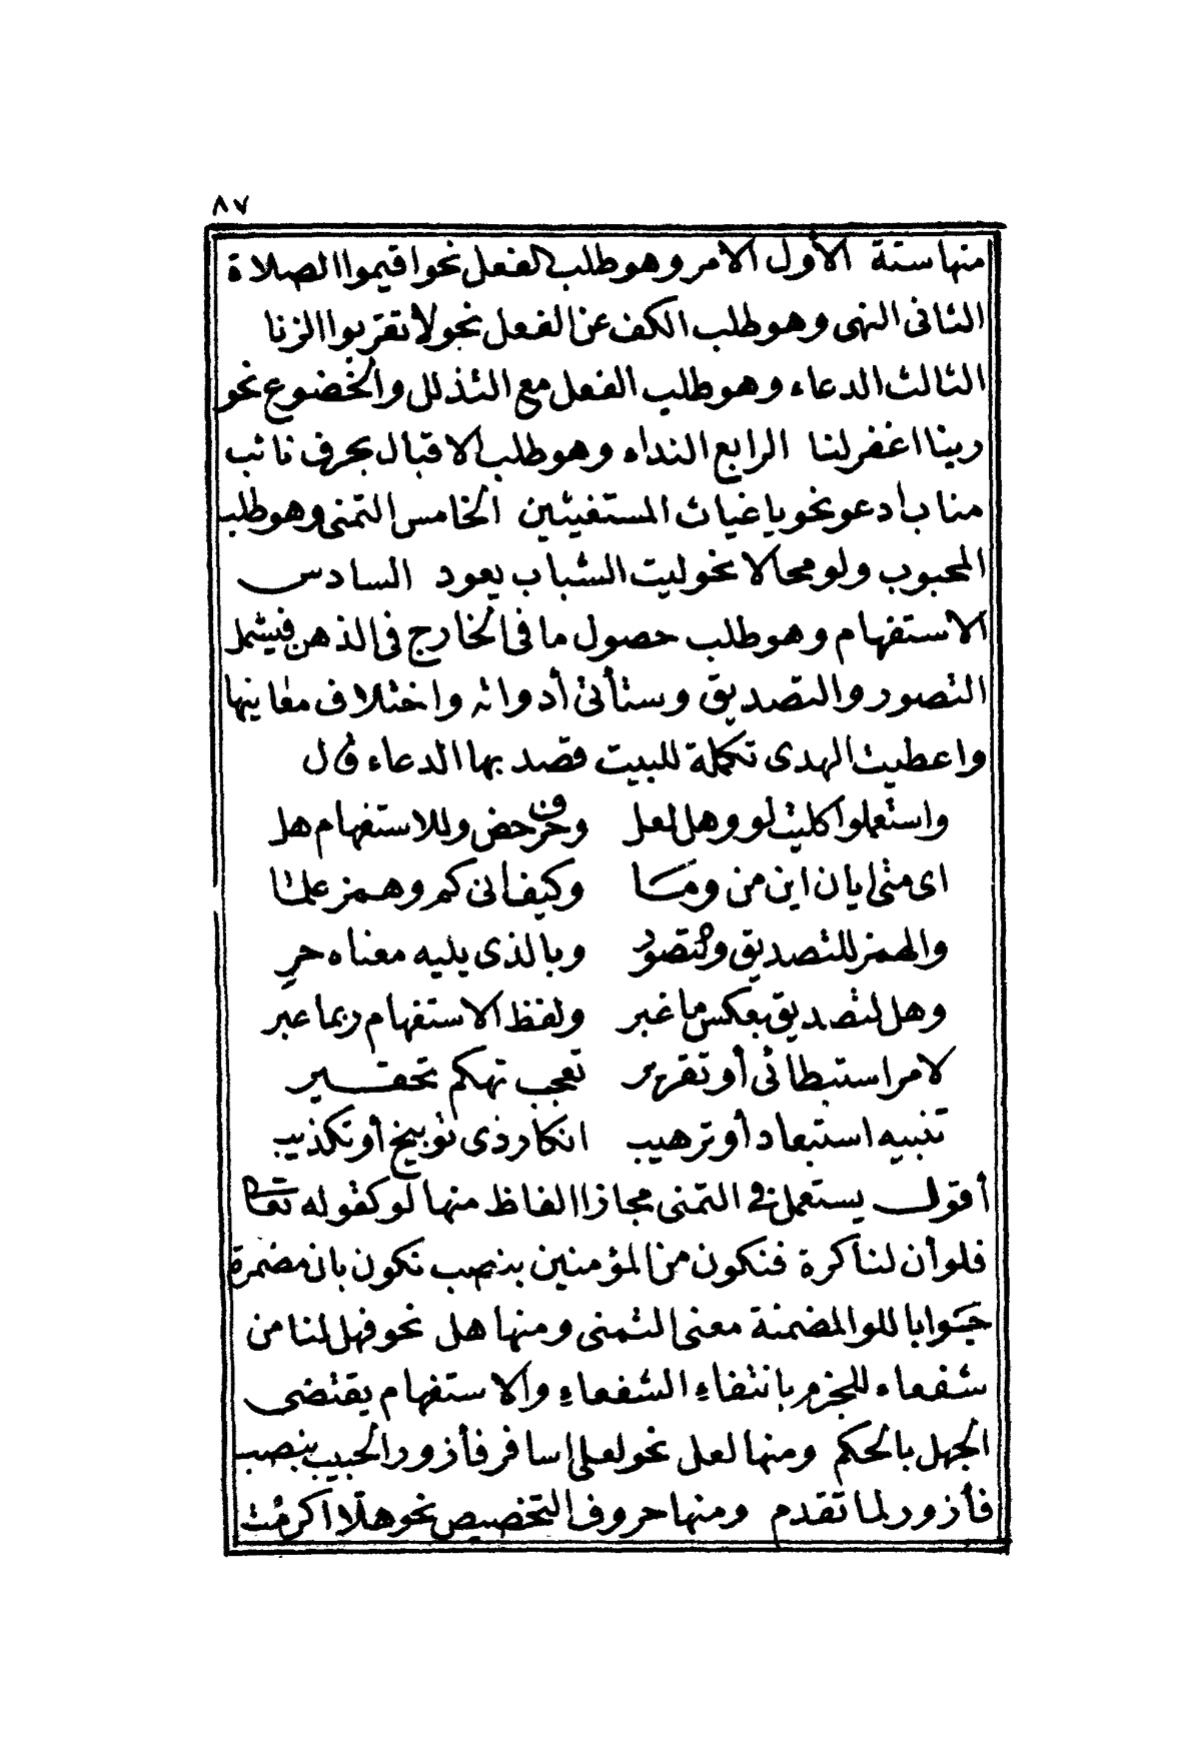 ٨٧
منها ستة الأول الامر وهو طلب الفعل نحو اقيموا الصلاة
الثانى النهى وهو طلب الكف عن الفعل نحو لا تقربوا الزنا
الثالث الدعاء وهو طلب الفعل مع التذلل والخضوع نحو
ربنا اغفر لنا الرابع النداء وهو طلب الاقبال بحرف نائب
مناب ادعو نحو يا غياث المستغيثين الخامس التمنى وهو طلب
المحبوب ولو محالا نحو ليت الشباب يعود السادس
الاستفهام وهو طلب حصول ما فى الخارج فى الذهن فيشمل
التصور والتصديق وستأتى أدواته واختلاف معانيها
واعطيت الهدى تكملة للبيت قصد بها الدعاء قال
واستعملوا كليت لو وهل لعل وحرف حض وللاستفهام هل
اى متى ايان اين من وما وكيف انى كم وهمز علما
والهمز للتصديق والتصور وبالذى يليه معناه حر
وهل لتصديق بعكس ما غبر ولفظ الاستفهام ربما عبر
لامر استبطائى أو تقرير تعجب تهكم تحقير
تنبيه استبعاد أو ترهيب انكار ذى توبيخ أو تكذيب
أقول يستعمل فى التمنى مجازا الفاظ منها لو كقوله تعالى
فلو أن لنا كرة فنكون من المؤمنين بنصب نكون بان مضمرة
جوابا للو المضمنة معنى التمنى ومنها هل نحو فهل لنا من
شفعاء للجزم بانتفاء الشفعاء والاستفهام يقتضى
الجهل بالحكم ومنها لعل نحو لعلى اسافر فأزور الحبيب بنصب
فأزور لما تقدم ومنها حروف التخصيص نحو هلا اكرمت